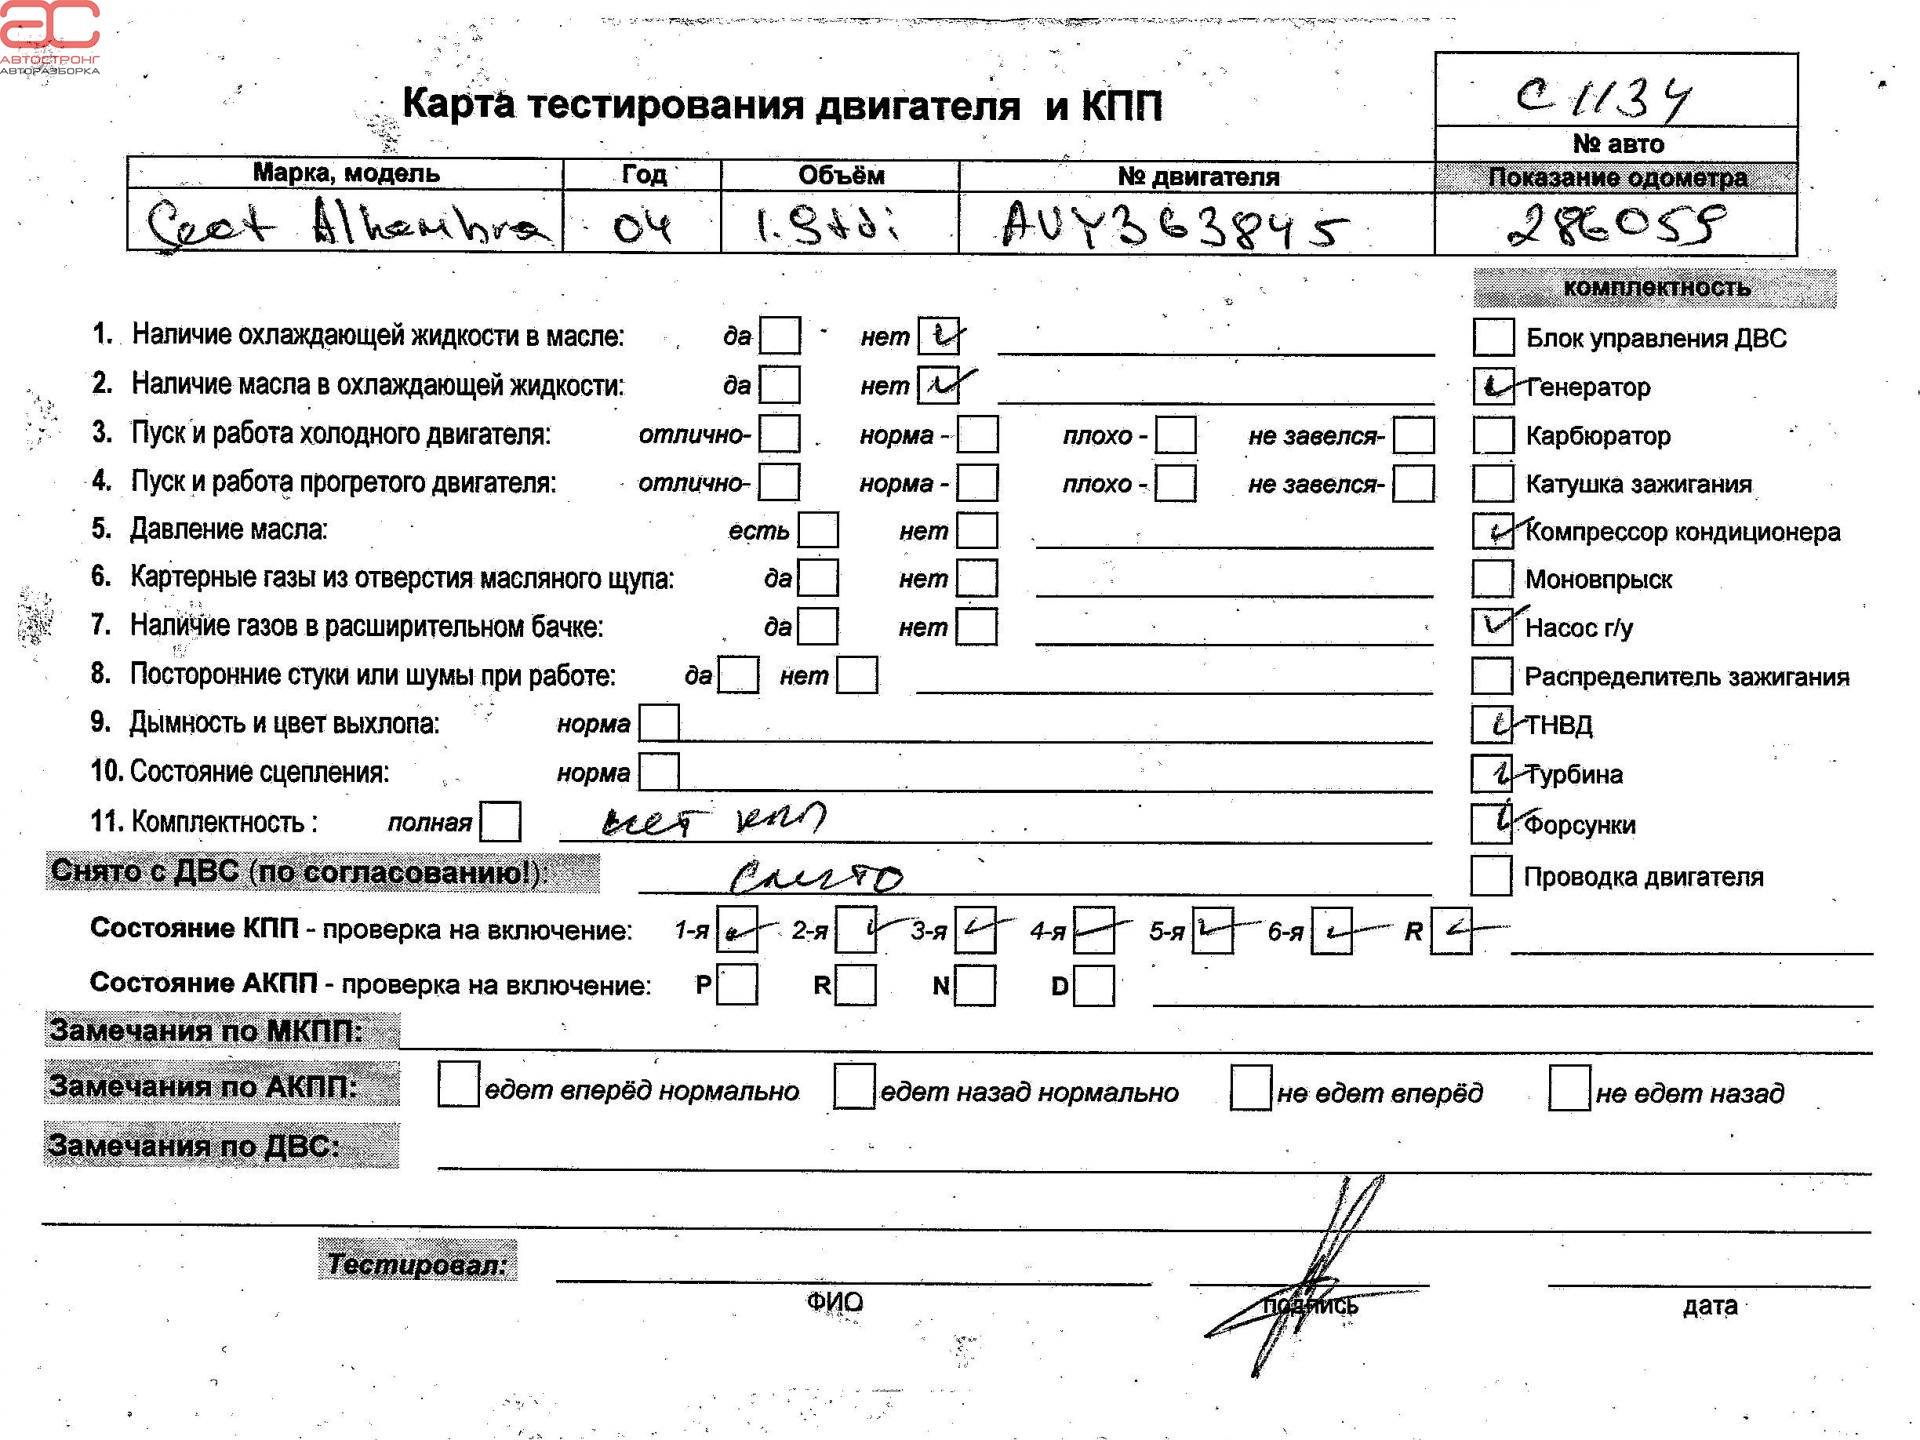 АС
АВТОСТРОНГ
АВТОРАЗБОРКА
Карта тестирования двигателя и КПП
С 1134
№ авто
Марка, модель Год Объём № двигателя Показание одометра
Сеат Alhambra 04 1.9tdi AUY363845 286059
комплектность
1. Наличие охлаждающей жидкости в масле: да нет
Блок управления ДВС
2. Наличие масла в охлаждающей жидкости: да нет
Генератор
3. Пуск и работа холодного двигателя: отлично- норма - плохо - не завелся-
Карбюратор
4. Пуск и работа прогретого двигателя: отлично- норма - плохо - не завелся-
Катушка зажигания
5. Давление масла: есть нет
Компрессор кондиционера
6. Картерные газы из отверстия масляного щупа: да нет
Моновпрыск
7. Наличие газов в расширительном бачке: да нет
Насос г/у
8. Посторонние стуки или шумы при работе: да нет
Распределитель зажигания
9. Дымность и цвет выхлопа: норма
ТНВД
10. Состояние сцепления: норма
Турбина
11. Комплектность : полная нет КПП
Форсунки
Снято с ДВС (по согласованию!): снято
Проводка двигателя
Состояние КПП - проверка на включение: 1-я 2-я 3-я 4-я 5-я 6-я R
Состояние АКПП - проверка на включение: P R N D
Замечания по МКПП:
Замечания по АКПП: едет вперёд нормально едет назад нормально не едет вперёд не едет назад
Замечания по ДВС:
Тестировал:
ФИО подпись дата